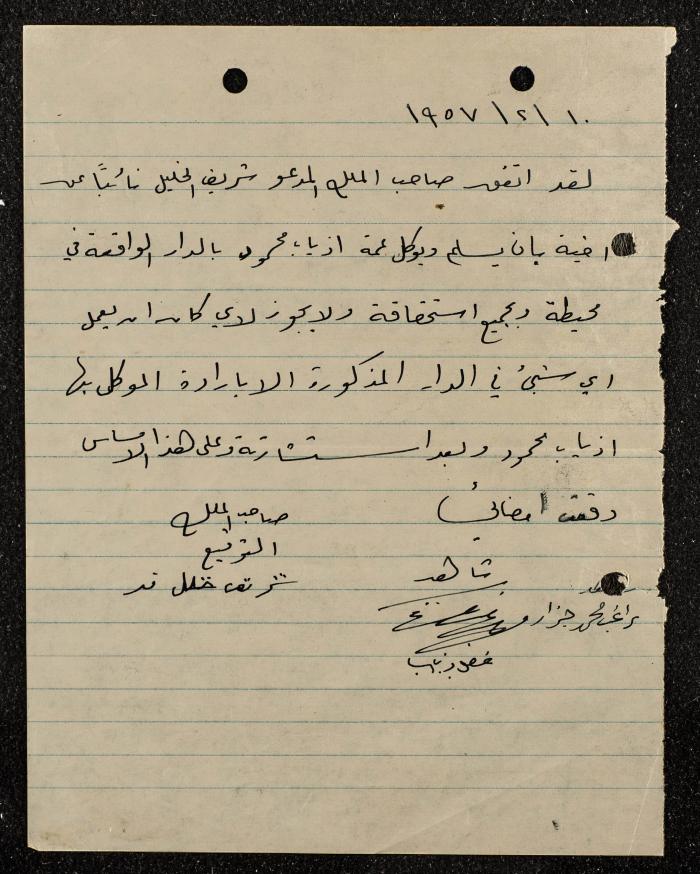 ١٩٥٧/٢/١٠
لقد اتفق صاحب الملك المدعو شريف الخليل نائبًا عن
اخية بان يسلم ويوكل عمة اذياب محمود بالدار الواقعة في
محيطة وبجميع استحقاقة ولا يجوز لاي كان ان يعمل
اي شيئ في الدار المذكورة الا بارادة الموكل بها
اذياب محمود وبعد استشارتة وعلى هذا الاساس
وقعت امضائي
صاحب الملك
التوقيع
شريف خليل
شاهد
شاهد
راغب محمد جزار